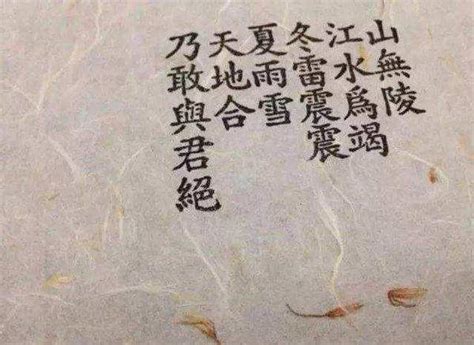 山無陵
江水爲竭
冬雷震震
夏雨雪
天地合
乃敢與君絕